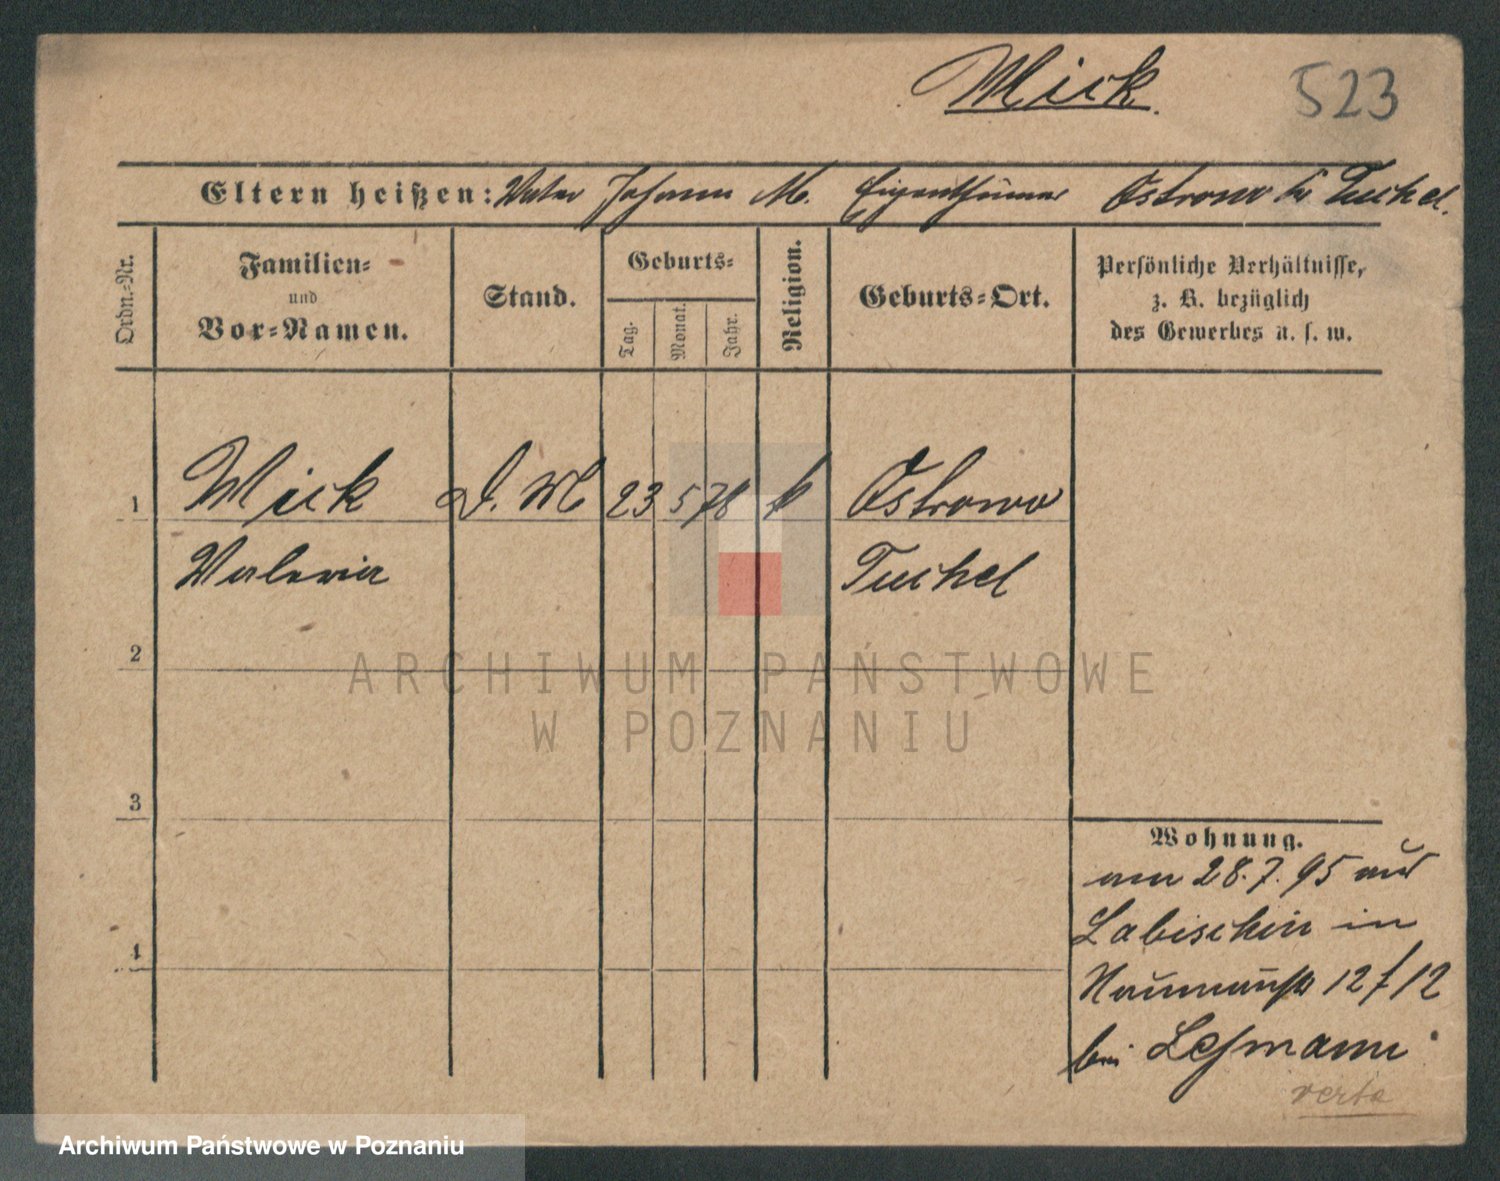 Mick.
523
Eltern heißen: Vater Johann M. Eigenthümer Ostrowo bei Tuchel.
Ordn.-Nr.
Familien-
und
Vor-Namen.
Stand.
Geburts-
Tag.
Monat.
Jahr.
Religion.
Geburts-Ort.
Persönliche Verhältnisse,
z. B. bezüglich
des Gewerbes u. s. w.
1 Mick D. M 23 5 78 k Ostrowo
Valeria Tuchel
2
3
4
Wohnung.
am 28.7.95 aus
Labischin in
Naumannstr 12/12
bei Lehmann
verte
ARCHIWUM PAŃSTWOWE
W POZNANIU
Archiwum Państwowe w Poznaniu